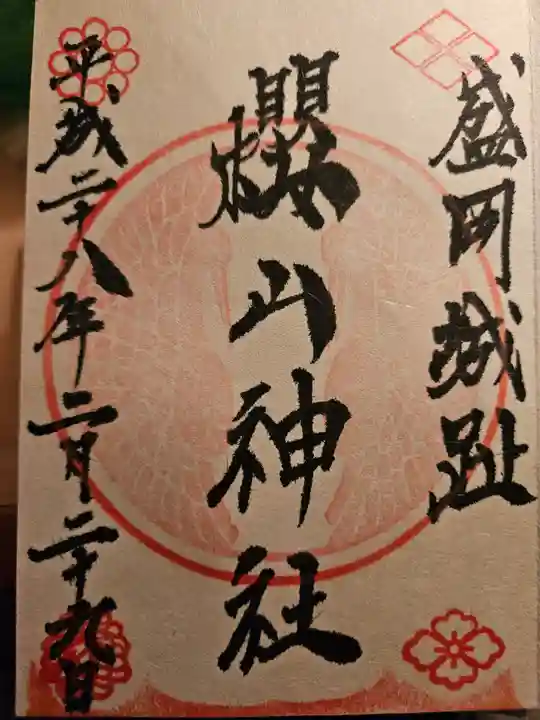 盛岡城趾
櫻山神社
平成二十八年二月二十九日